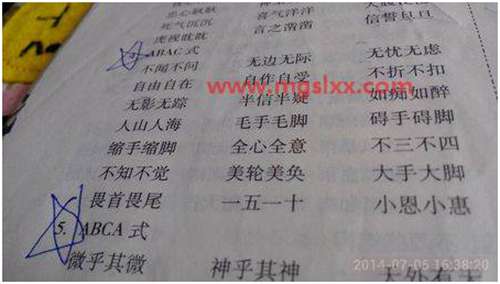 死气沉沉 喜气洋洋
虎视眈眈 言之凿凿 信誓旦旦
ABAC 式
不闻不问 无边无际 无忧无虑
自由自在 自作自受 不折不扣
www.mgslxx.com
无影无踪 半信半疑 如痴如醉
人山人海 毛手毛脚 碍手碍脚
缩手缩脚 全心全意 不三不四
不知不觉 美轮美奂 大手大脚
畏首畏尾 一五一十 小恩小惠
5. ABCA 式
微乎其微 神乎其神 天外有天
2014-07-05 16:38:20